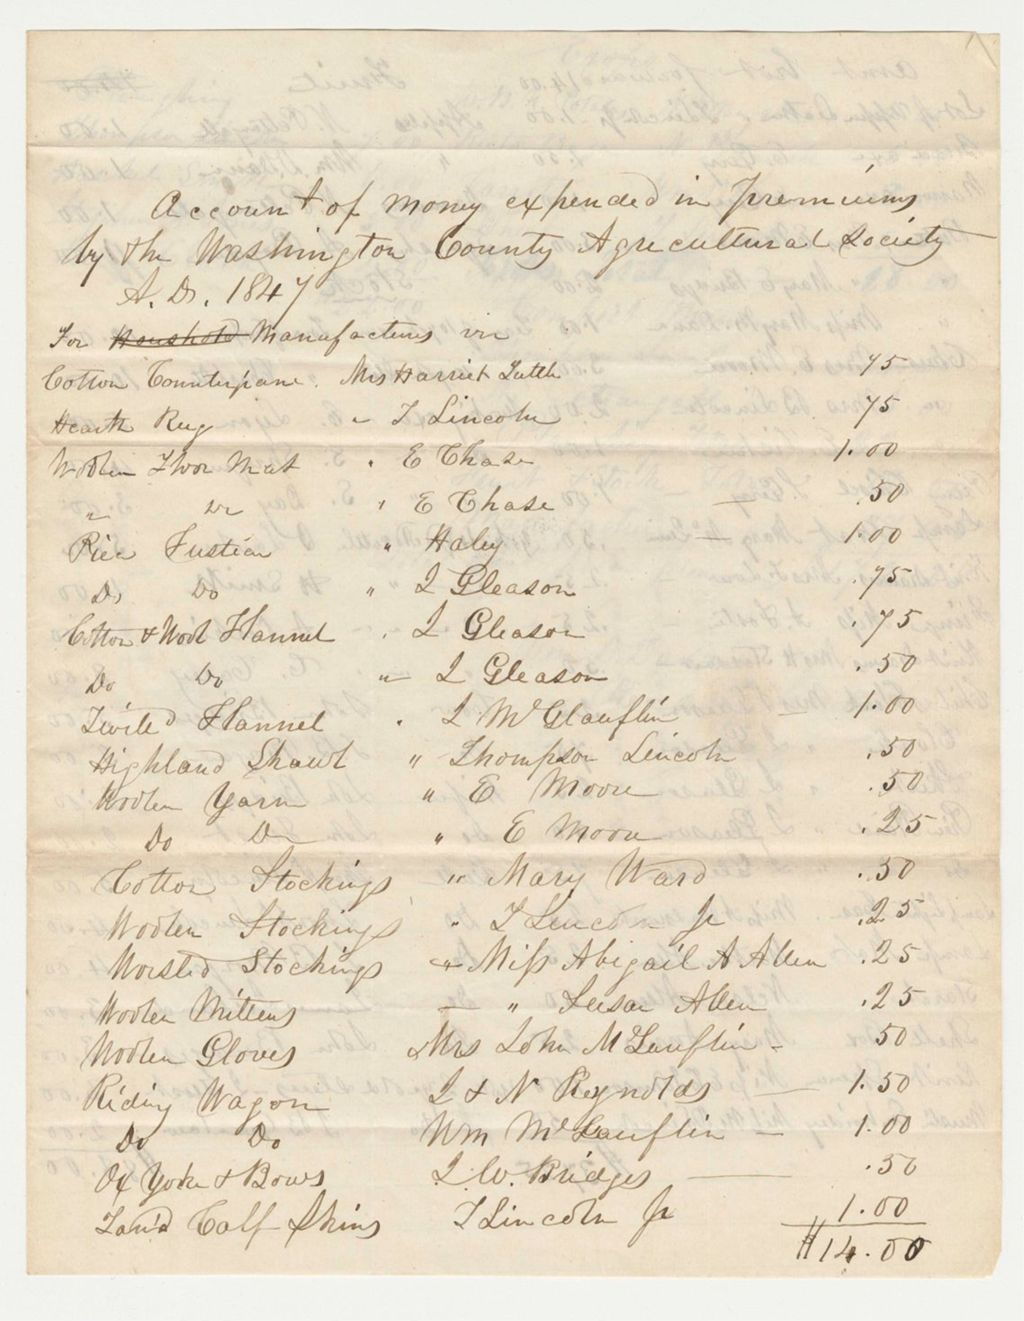 Account of money expended in Premiums
by the Washington County Agricultural Society
A.D. 1847
For Houshold Manufactures viz
Cotton Counterpane. Mrs Harriet 75
Hearth Rug " T Lincoln 75
Woolen Floor Mat " E Chase 1.00
" Do " E Chase — .50
Piece Fustian " Haley — 1.00
Do Do " I Gleason .75
Cotton & Wool Flannel " I Gleason .75
Do Do " I Gleason .50
Twiled Flannel " I McGlauflin — 1.00
Highland Shawl " Thompson Lincoln .50
Woolen Yarn " E Moore .50
Do Do " E Moore .25
Cotton Stockings " Mary Ward .50
Woolen Stockings " T Lincoln Jr .25
Worsted Stockings " Miss Abigail A Allen .25
Woolen Mittens — " Allen .25
Woolen Gloves Mrs John McGlauflin - 50
Riding Wagon I & N Reynolds — 1.50
Do Do Wm McGlauflin — 1.00
Ox Yoke & Bows I. W. Bridges — .50
Tan'd Calf Skins T Lincoln Jr 1.00
$14.00